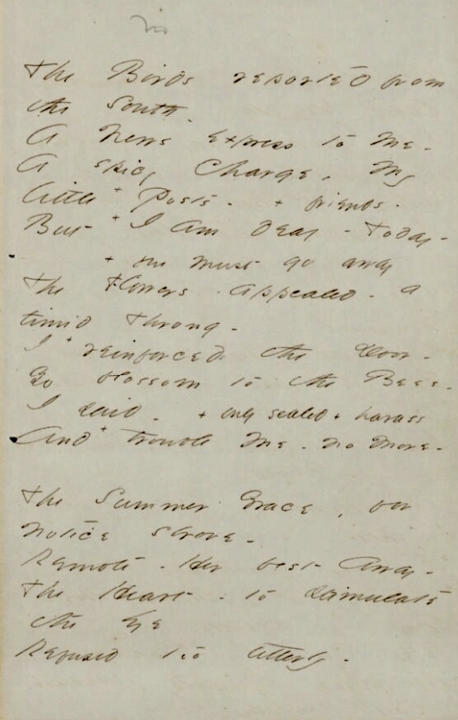 The Birds reported from
the South.
A News express to Me -
A spicy Charge, My
little + Posts - + friends -
But + I am deaf - Today -
+ you must go away
The Flowers - appealed - a
timid Throng -
I + reinforced the Door -
Go blossom to the Bees -
I said - + only sealed + harass
And + trouble Me - no More -
The Summer Grace, for
Notice strove -
Remote - Her best Array -
The Heart - to stimulate
the Eye
Refused too utterly -